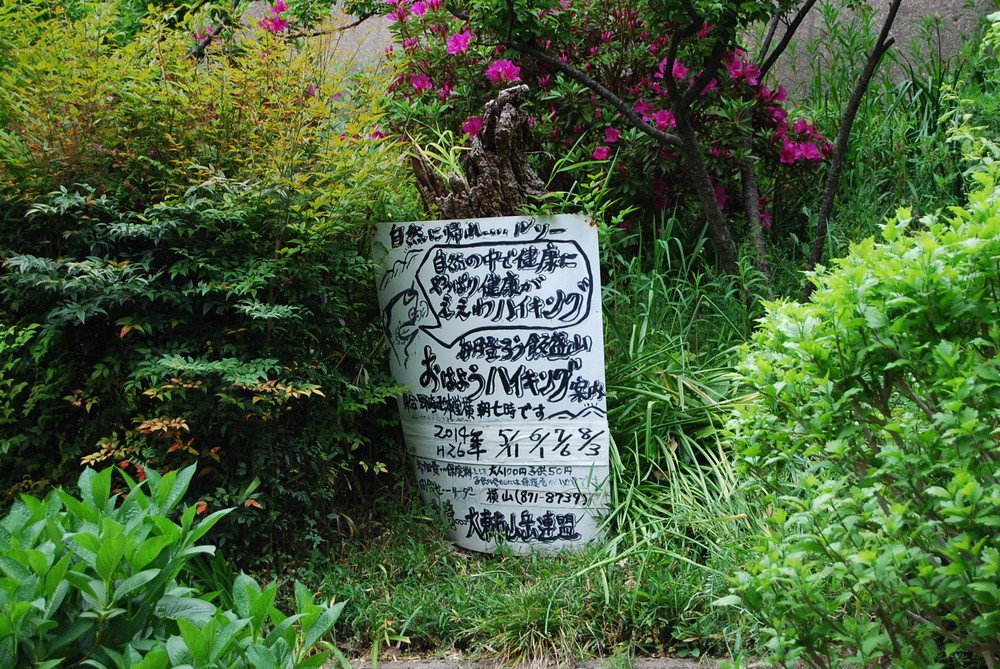 自然に帰れ……ルソー
自然の中で健康に
やっぱり健康が
ええわハイキング
毎月登ろう飯盛山
おはようハイキング案内
集合 野崎 朝七時です
2014年 5/11 6/1 7/6 8/3
H26
保険料として大人100円子供50円
リーダー 横山(871-8739)
大東山岳連盟